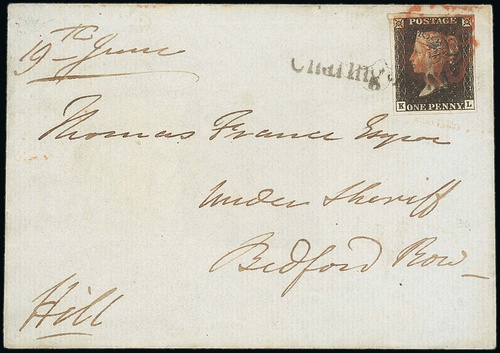 19th June
Charing
POSTAGE
K ONE PENNY L
Thomas France Esqre
Under Sheriff
Bedford Row
Hill